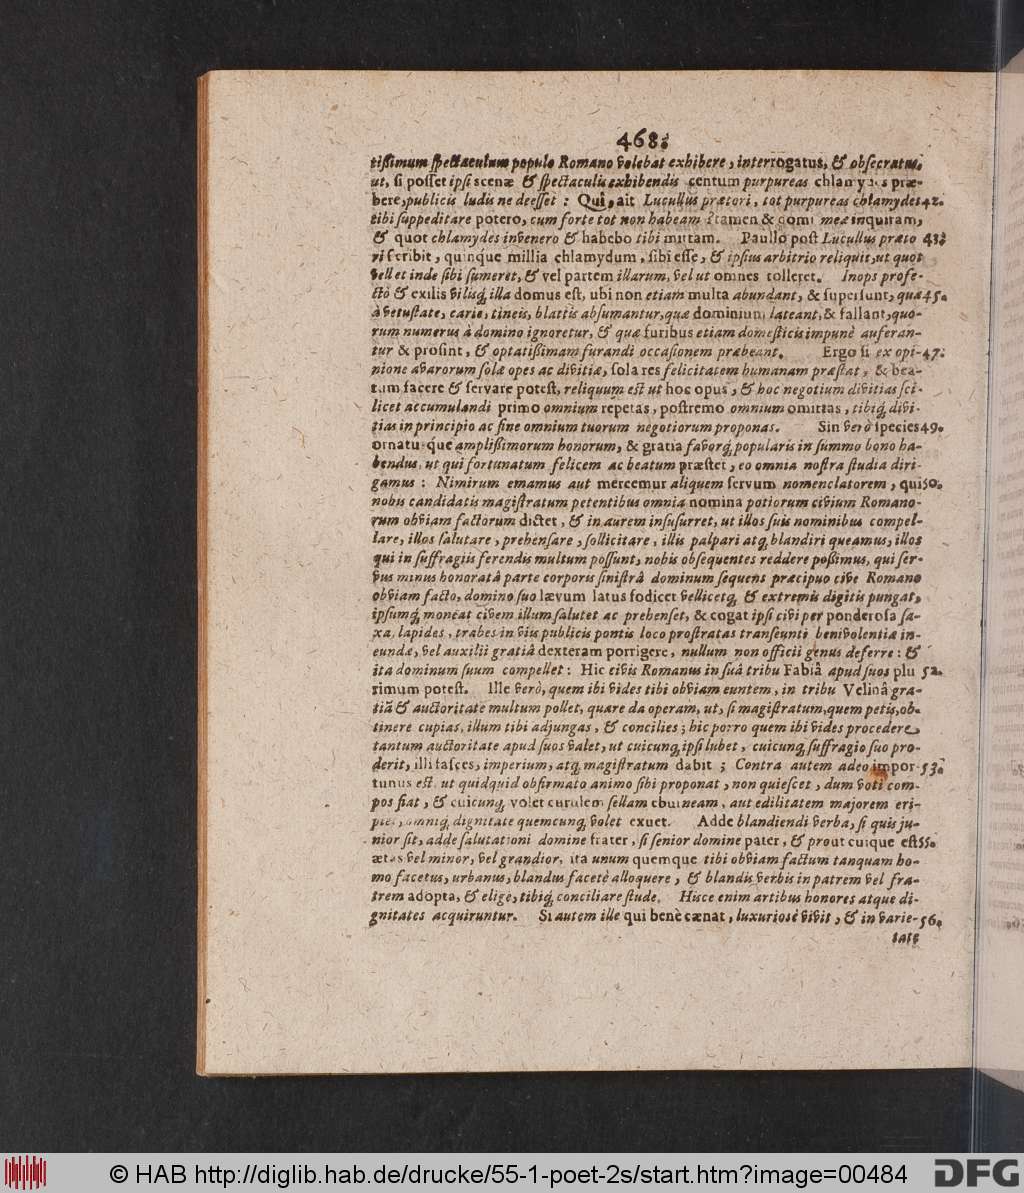 468.
tißimum spectaculum populo Romano volebat exhibere, interrogatus, & obsecratus,
ut, si posset ipsi scenæ & spectaculis exhibendis centum purpureas chlamydes præ-
bere, publicis ludis ne deesset: Qui, ait Lucullus prætori, tot purpureas chlamydes 42.
tibi suppeditare potero, cum forte tot non habeam? tamen & domi meæ inquiram,
& quot chlamydes invenero & habebo tibi mittam. Paullò post Lucullus præto 43.
ri scribit, quinque millia chlamydum, sibi esse, & ipsius arbitrio reliquit, ut quot
vellet inde sibi sumeret, & vel partem illarum, vel ut omnes tolleret. Inops profe-
ctò & exilis vilisq́; illa domus est, ubi non etiam multa abundant, & supersunt, quæ 45.
à vetustate, carie, tineis, blattis absumantur, quæ dominium lateant, & fallant, quo-
rum numerus à domino ignoretur, & quæ furibus etiam domesticis impunè auferan-
tur & prosint, & optatißimam furandi occasionem præbeant. Ergo si ex opi- 47.
nione avarorum solæ opes ac divitiæ, sola res felicitatem humanam præstat, & bea-
tum facere & servare potest, reliquum est ut hoc opus, & hoc negotium divitias sci-
licet accumulandi primo omnium repetas, postremo omnium omittas, tibiq́; divi-
tias in principio ac fine omnium tuorum negotiorum proponas. Sin verò species 49.
ornatusque amplißimorum honorum, & gratia favorq́; popularis in summo bono ha-
bendus, ut qui fortunatum felicem ac beatum præstet, eo omnia nostra studia diri-
gamus: Nimirum emamus aut mercemur aliquem servum nomenclatorem, qui 50.
nobis candidatis magistratum petentibus omnia nomina potiorum civium Romano-
rum obviam factorum dictet, & in aurem insusurret, ut illos suis nominibus compel-
lare, illos salutare, prehensare, sollicitare, illis palpari atq́; blandiri queamus, illos
qui in suffragiis ferendis multum possunt, nobis obsequentes reddere poßimus, qui ser-
vus minus honoratâ parte corporis sinistrâ dominum sequens præcipuo cive Romano
obviam facto, domino suo lævum latus fodicet vellicetq́; & extremis digitis pungat,
ipsumq́; moneat civem illum salutet ac prehenset, & cogat ipsi civi per ponderosa sa-
xa, lapides, trabes in viis publicis pontis loco prostratas transeunti benivolentiæ in-
eundæ, vel auxilii gratiâ dexteram porrigere, nullum non officii genus deferre: &
ita dominum suum compellet: Hic civis Romanus in suâ tribu Fabiâ apud suos plu 52.
rimum potest. Ille verò, quem ibi vides tibi obviam euntem, in tribu Velinâ gra-
tiâ & auctoritate multum pollet, quare da operam, ut, si magistratum, quem petis, ob-
tinere cupias, illum tibi adjungas, & concilies; hic porro quem ibi vides procedere
tantum auctoritate apud suos valet, ut cuicunq́; ipsi lubet, cuicunq́; suffragio suo pro-
derit, illi fasces, imperium, atq́; magistratum dabit; Contra autem adeo impor- 53.
tunus est, ut quidquid obfirmato animo sibi proponat, non quiescet, dum voti com-
pos fiat, & cuicunq́; volet curulem sellam eburneam, aut edilitatem majorem eri-
piet, omniq́; dignitate quemcunq́; volet exuet. Adde blandiendi verba, si quis ju-
nior sit, adde salutationi domine frater, si senior domine pater, & prout cuique est 55.
ætas vel minor, vel grandior, ita unum quemque tibi obviam factum tanquam ho-
mo facetus, urbanus, blandus facetè alloquere, & blandis verbis in patrem vel fra-
trem adopta, & elige, tibiq́; conciliare stude. Hisce enim artibus honores atque di-
gnitates acquiruntur. Si autem ille qui benè cænat, luxuriosè vivit, & in varie- 56.
tate
© HAB http://diglib.hab.de/drucke/55-1-poet-2s/start.htm?image=00484
DFG